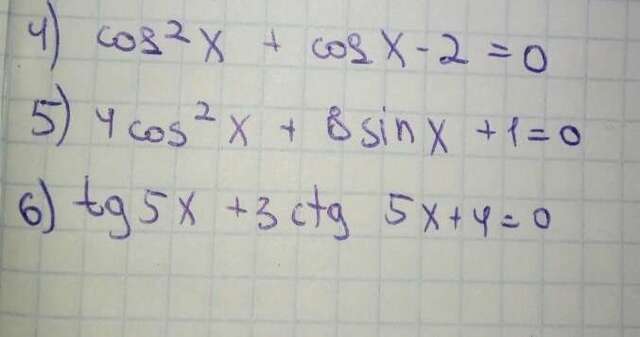 4) cos²x + cosx-2=0
5) 4cos²x + 8sinx+1=0
6) tg5x +3ctg 5x+4=0